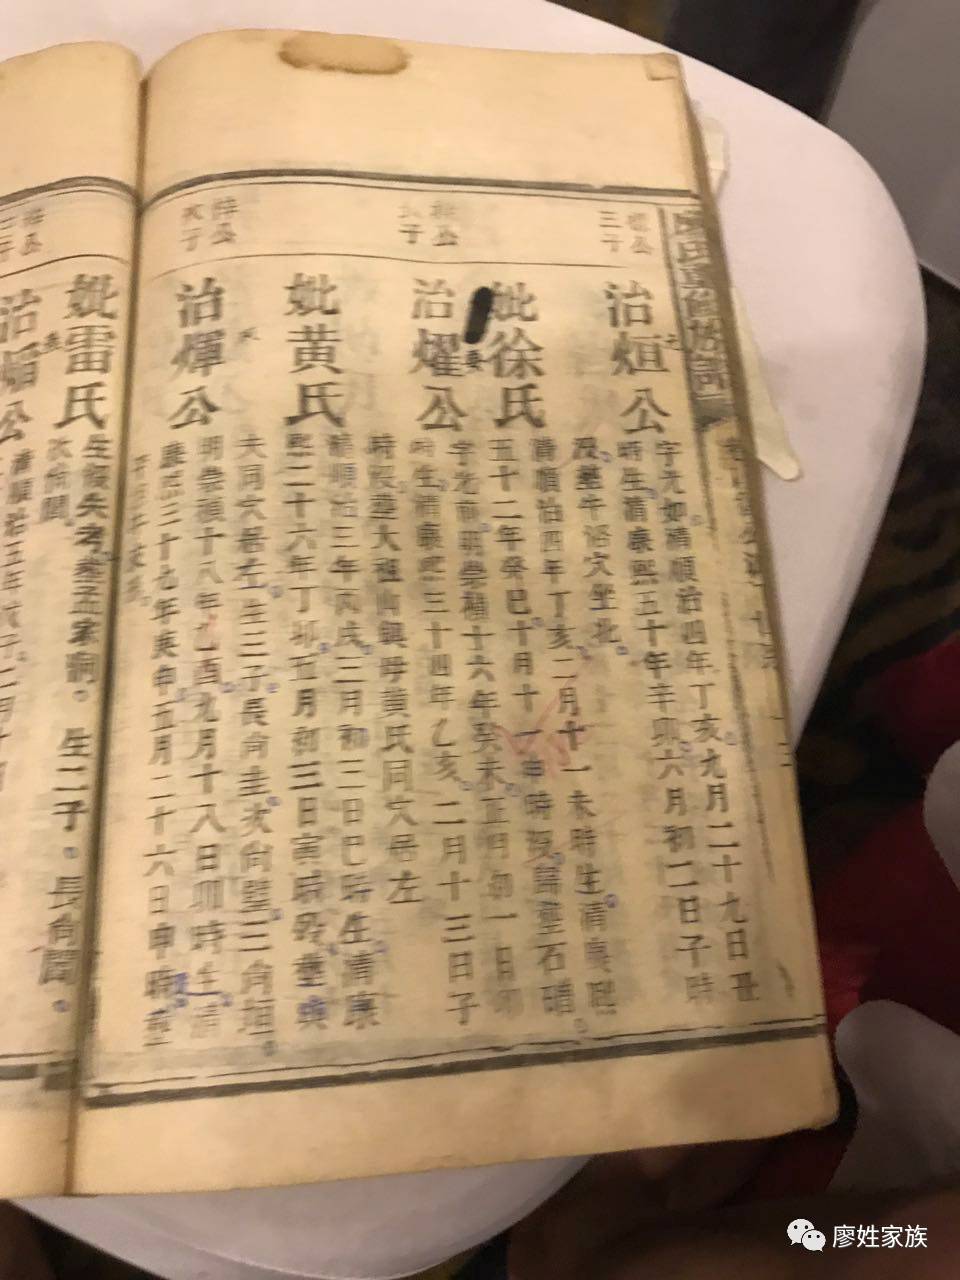 三子
治烜公
字光如清順治四年丁亥九月二十九日丑
時生清康熙五十年辛卯六月初二日子時
沒葬牛浴穴坐北
妣徐氏
清順治四年丁亥二月十一未時生清康熙
五十二年癸巳十月十一申時沒歸葬石磖
治燿公
字光前明崇禎十六年癸未正月初一日卯
時生清康熙三十四年乙亥二月十三日子
時沒葬大祖山鎮母黃氏同穴居左
妣黃氏
清順治三年丙戌三月初三日巳時生清康
熙二十六年丁卯五月初三日寅時歿葬與
夫同穴居左生三子長向圭次向璧三向垣
次子
治煇公
明崇禎十八年乙酉九月十八日卯時生清
康熙三十九年庚申五月二十六日申時葬
妣雷氏
生歿失考葬孟家洞 生二子 長向閏
次向閣
治煝公
清順治五年戊子二月十
廖姓家族